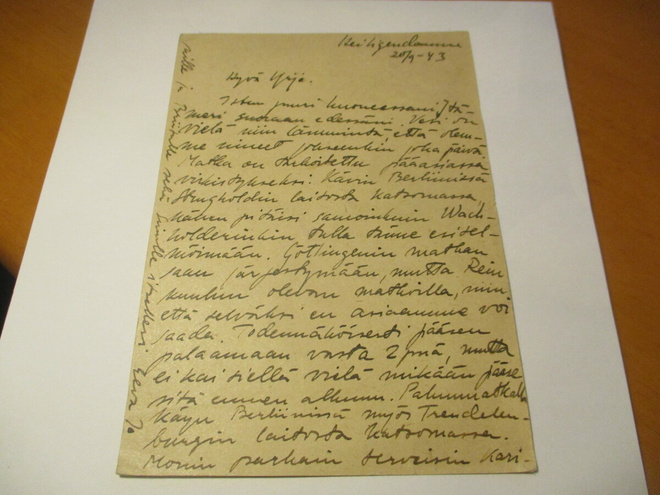 Heiligendamm
20/9-43
Hyvä Yrjö.
Istun juuri huoneessani, Itä-
meri suoraan edessäni. Vesi on
vielä niin lämmintä, että olem-
me uineet jokseenkin joka päivä.
Matka on tarkoitettu pääasiassa
virkistykseksi. Kävin Berliinissä
Strugholdin laitosta katsomassa,
hänen pitäisi samoinkuin Wach-
holderinkin tulla tänne esitel-
möimään. Göttingenin matkan
saan järjestymään, mutta Rein
kuuluu olevan matkoilla, niin
että selvyyksi en asiaamme voi
saada. Todennäköisesti pääsen
palaamaan vasta 2 pnä, mutta
ei kai siellä vielä mikään pääse
sitä ennen alkuun. Paluumatkalla
käyn Berliinissä myös Trendelen-
burgin laitosta katsomassa.
Monin parhain terveisin Kari-